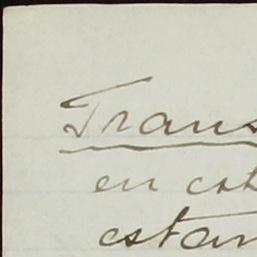 Trans
en cob
estan